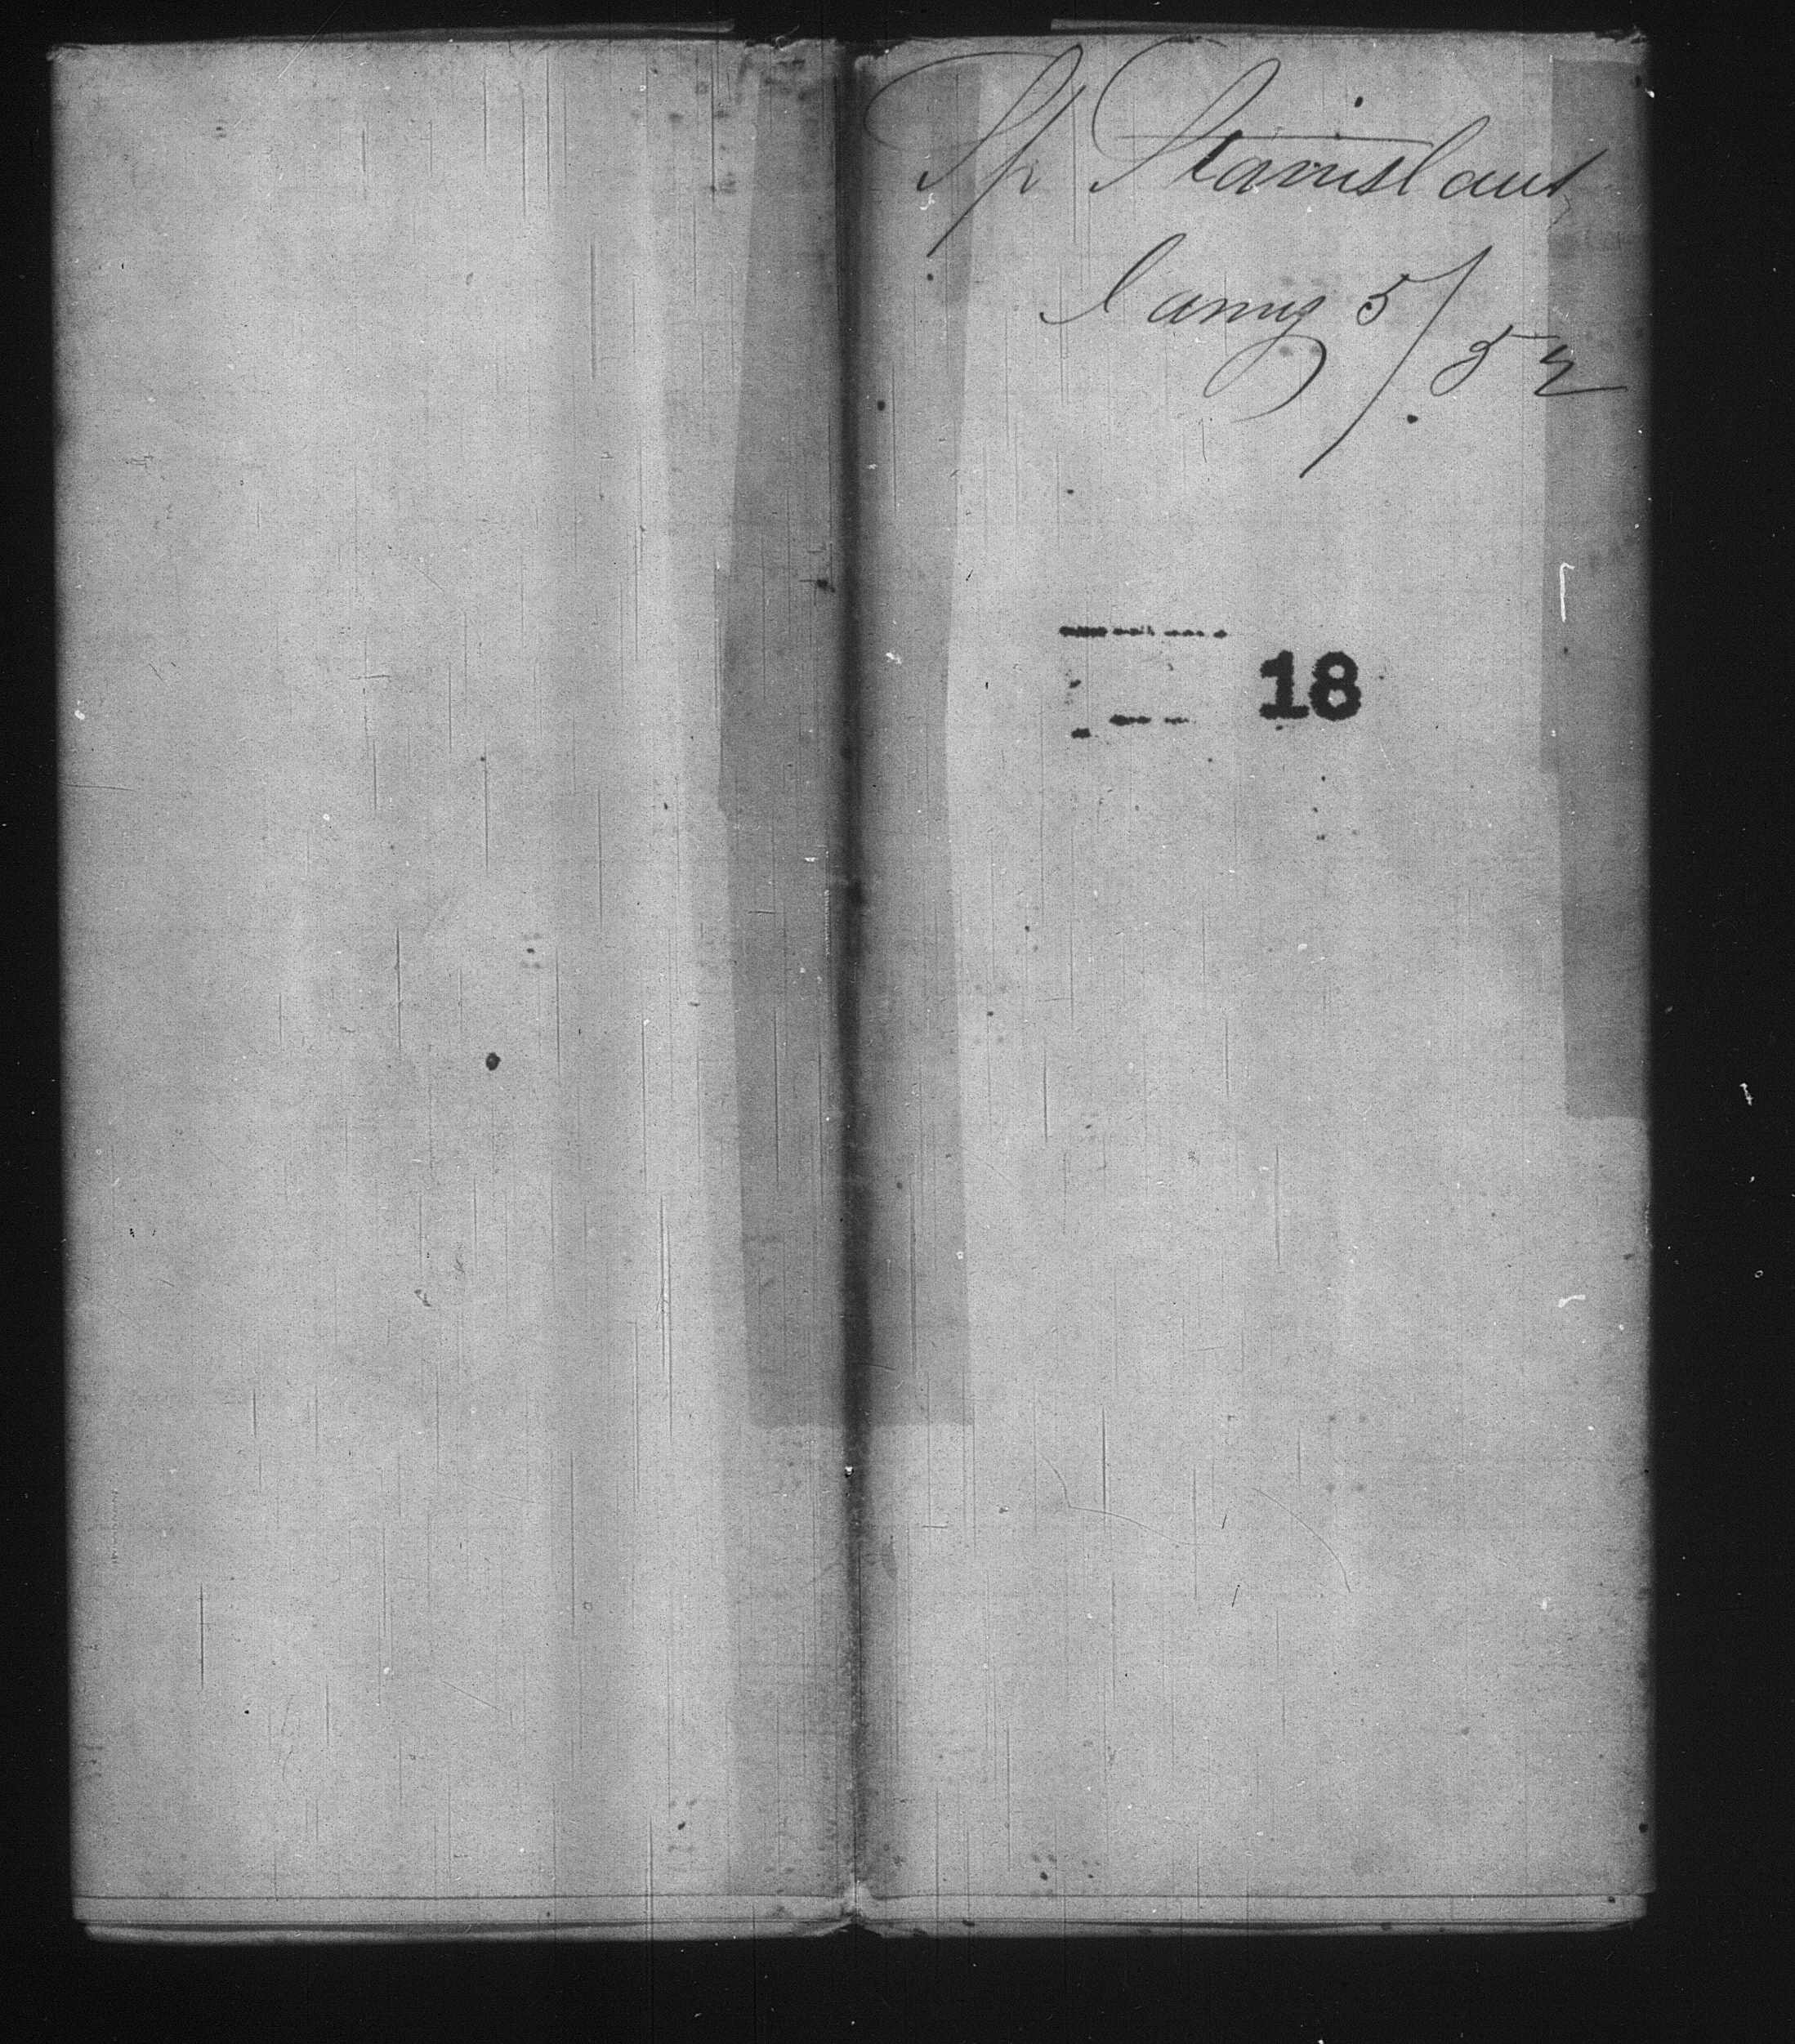 Sp Stanislaus
Camg 5/52
18